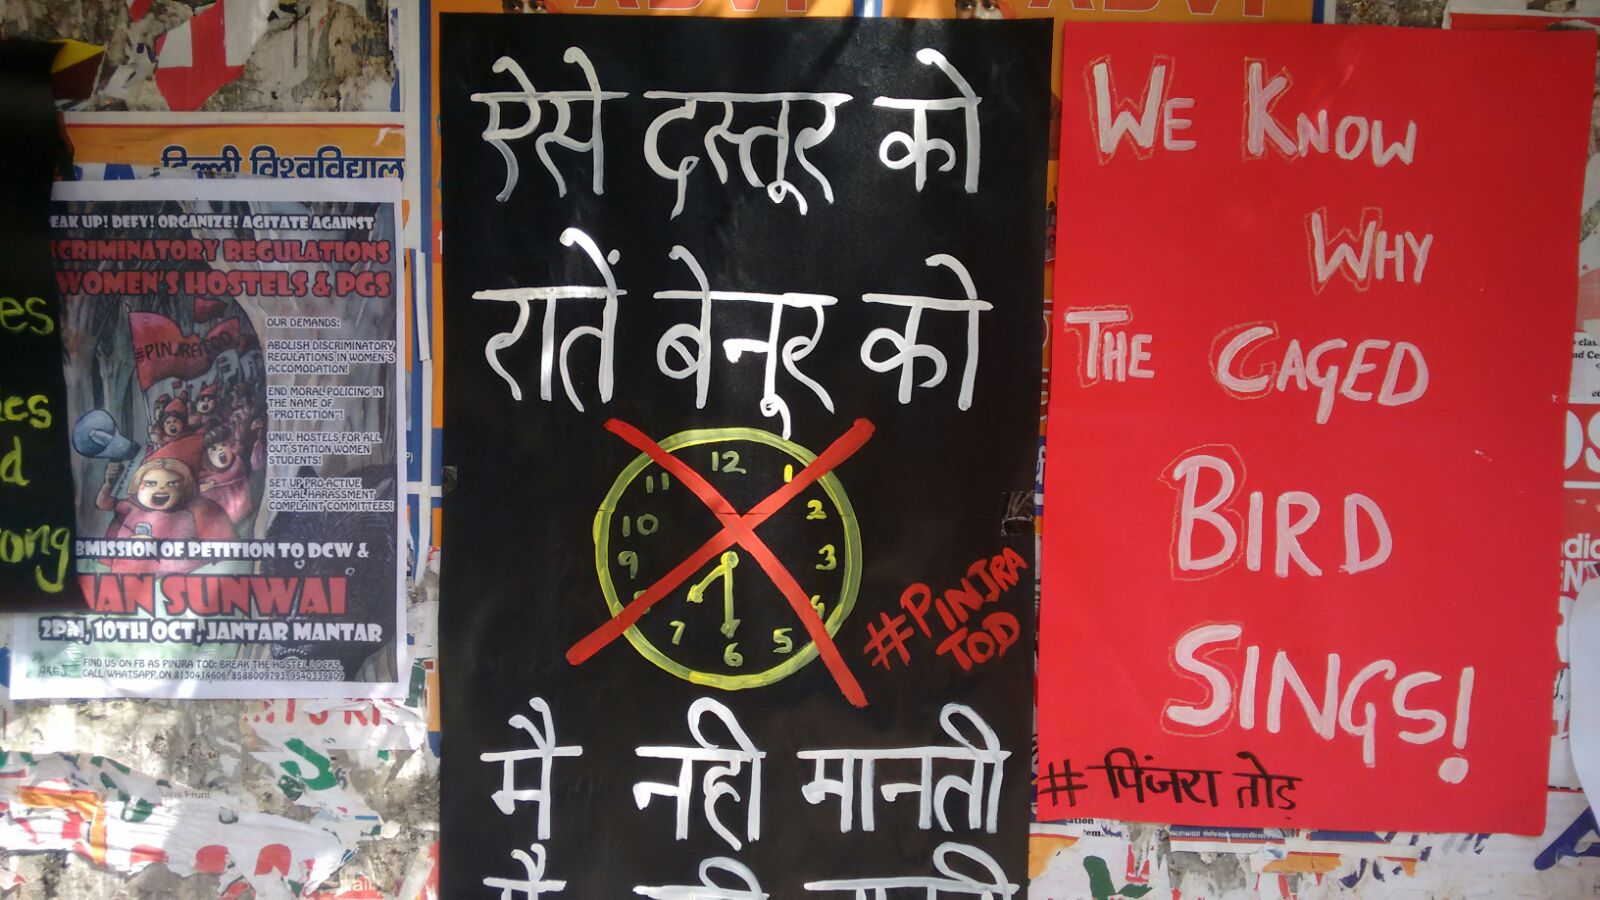 दिल्ली विश्वविद्याल
EAK UP! DEFY! ORGANIZE! AGITATE AGAINST
SCRIMINATORY REGULATIONS
WOMEN'S HOSTELS & PGS
OUR DEMANDS:
ABOLISH DISCRIMINATORY
REGULATIONS IN WOMEN'S
ACCOMODATION!
END MORAL POLICING IN
THE NAME OF
"PROTECTION"!
UNIV. HOSTELS FOR ALL
OUT STATION WOMEN
STUDENTS!
SET UP PRO-ACTIVE
SEXUAL HARASSMENT
COMPLAINT COMMITTEES!
#PINJRA TOD
BMISSION OF PETITION TO DCW &
JAN SUNWAI
2PM, 10TH OCT, JANTAR MANTAR
FIND US ON FB AS PINJRA TOD: BREAK THE HOSTEL LOCKS.
CALL/WHATSAPP ON 8130414606, 8588009793, 9540339809
es
d
ong
ऐसे दस्तूर को
रातें बेनूर को
12
1
2
3
4
5
6
7
8
9
10
11
#PINJRA
TOD
मै नही मानती
WE KNOW
WHY
THE CAGED
BIRD
SINGS!
# पिंजरा तोड़